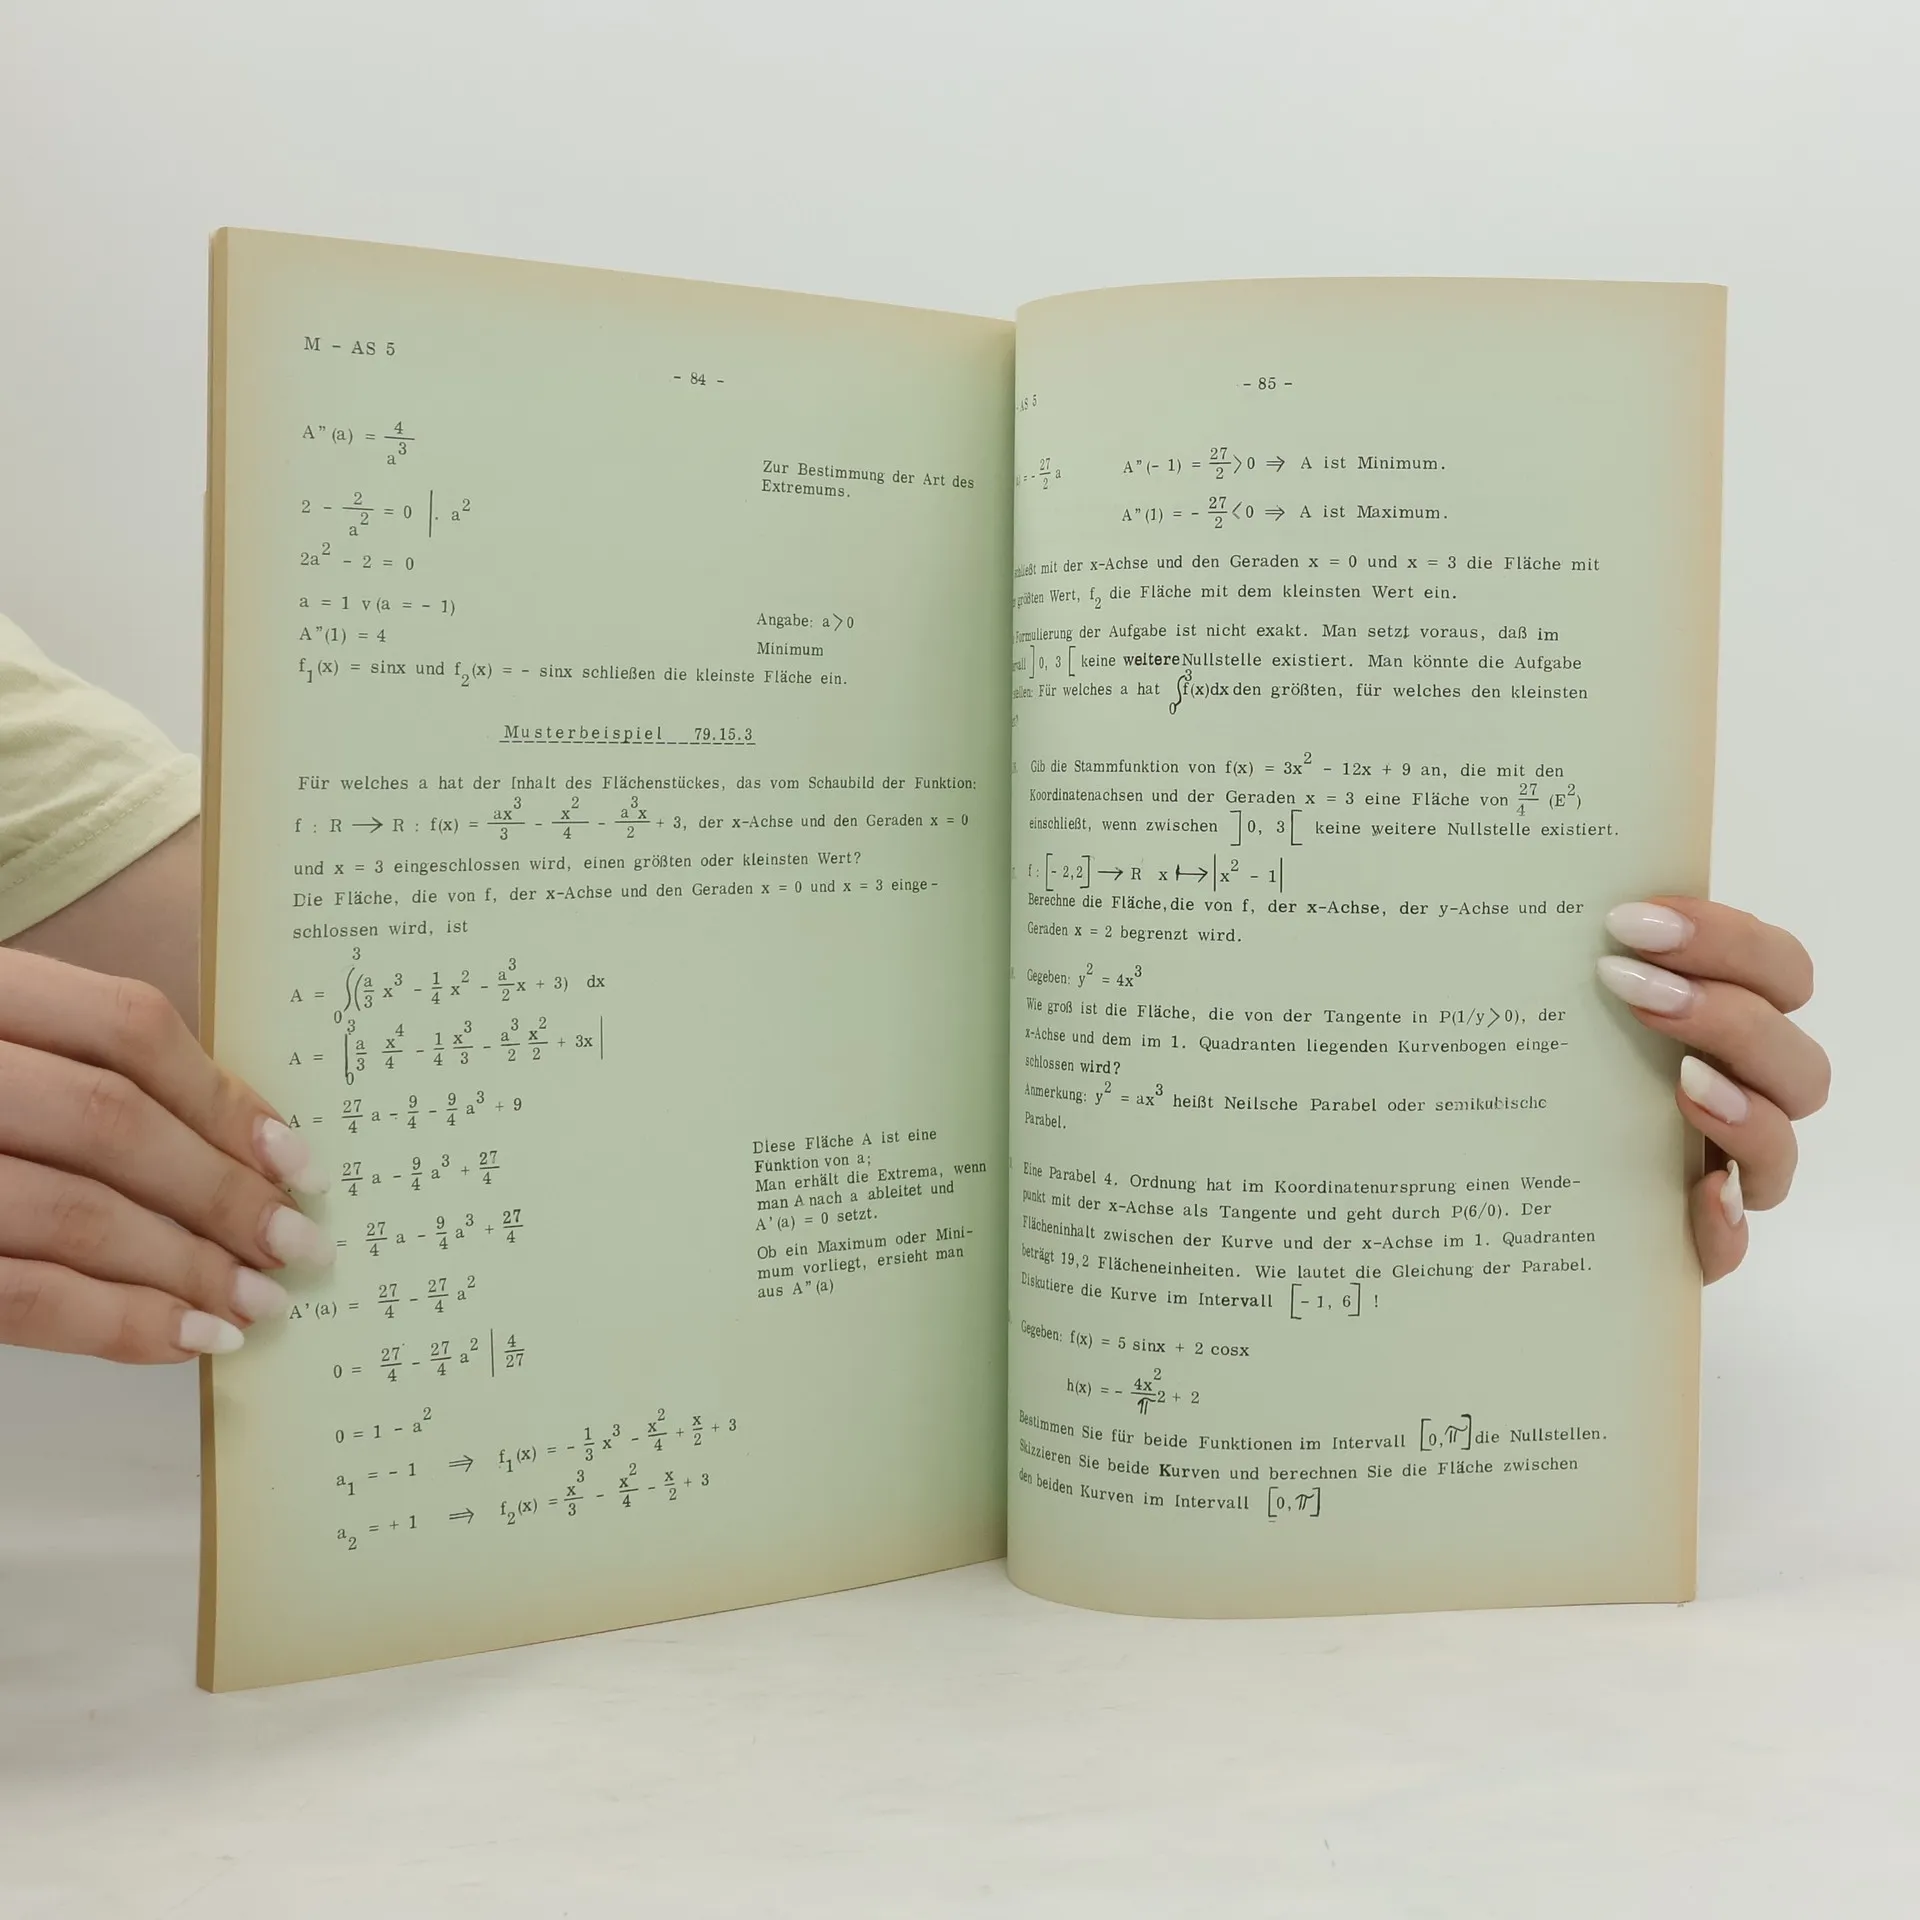 M - AS 5
- 84 -
A"(a) = 4/a³
Zur Bestimmung der Art des
Extremums.
2 - 2/a² = 0 |. a²
2a² - 2 = 0
a = 1 v (a = - 1)
Angabe: a > 0
A"(1) = 4
Minimum
f₁(x) = sinx und f₂(x) = - sinx schließen die kleinste Fläche ein.
Musterbeispiel 79.15.3
Für welches a hat der Inhalt des Flächenstückes, das vom Schaubild der Funktion:
f : R → R : f(x) = ax³/3 - x²/4 - a³x/2 + 3, der x-Achse und den Geraden x = 0
und x = 3 eingeschlossen wird, einen größten oder kleinsten Wert?
Die Fläche, die von f, der x-Achse und den Geraden x = 0 und x = 3 einge-
schlossen wird, ist
A = ∫₀³ (a/3 x³ - 1/4 x² - a³/2 x + 3) dx
A = ₀³| a/3 x⁴/4 - 1/4 x³/3 - a³/2 x²/2 + 3x |
A = 27/4 a - 9/4 - 9/4 a³ + 9
27/4 a - 9/4 a³ + 27/4
= 27/4 a - 9/4 a³ + 27/4
Diese Fläche A ist eine
Funktion von a;
Man erhält die Extrema, wenn
man A nach a ableitet und
A'(a) = 0 setzt.
Ob ein Maximum oder Mini-
mum vorliegt, ersieht man
aus A"(a)
A'(a) = 27/4 - 27/4 a²
0 = 27/4 - 27/4 a² | 4/27
0 = 1 - a²
a₁ = - 1 ⇒ f₁(x) = - 1/3 x³ - x²/4 + x/2 + 3
a₂ = + 1 ⇒ f₂(x) = x³/3 - x²/4 - x/2 + 3
- 85 -
AS 5
= - 27/2 a A"(- 1) = 27/2 > 0 ⇒ A ist Minimum.
A"(1) = - 27/2 < 0 ⇒ A ist Maximum.
mit der x-Achse und den Geraden x = 0 und x = 3 die Fläche mit
größten Wert, f₂ die Fläche mit dem kleinsten Wert ein.
Formulierung der Aufgabe ist nicht exakt. Man setzt voraus, daß im
]0, 3[ keine weitere Nullstelle existiert. Man könnte die Aufgabe
Für welches a hat ∫₀³ f(x)dx den größten, für welches den kleinsten
Gib die Stammfunktion von f(x) = 3x² - 12x + 9 an, die mit den
Koordinatenachsen und der Geraden x = 3 eine Fläche von 27/4 (E²)
einschließt, wenn zwischen ]0, 3[ keine weitere Nullstelle existiert.
f: [- 2,2] → R x ↦ |x² - 1|
Berechne die Fläche, die von f, der x-Achse, der y-Achse und der
Geraden x = 2 begrenzt wird.
Gegeben: y² = 4x³
Wie groß ist die Fläche, die von der Tangente in P(1/y > 0), der
x-Achse und dem im 1. Quadranten liegenden Kurvenbogen einge-
schlossen wird?
Anmerkung: y² = ax³ heißt Neilsche Parabel oder semikubische
Parabel.
Eine Parabel 4. Ordnung hat im Koordinatenursprung einen Wende-
punkt mit der x-Achse als Tangente und geht durch P(6/0). Der
Flächeninhalt zwischen der Kurve und der x-Achse im 1. Quadranten
beträgt 19,2 Flächeneinheiten. Wie lautet die Gleichung der Parabel.
Diskutiere die Kurve im Intervall [- 1, 6] !
Gegeben: f(x) = 5 sinx + 2 cosx
h(x) = - 4x²/π² + 2
Bestimmen Sie für beide Funktionen im Intervall [0,π] die Nullstellen.
Skizzieren Sie beide Kurven und berechnen Sie die Fläche zwischen
den beiden Kurven im Intervall [0,π]